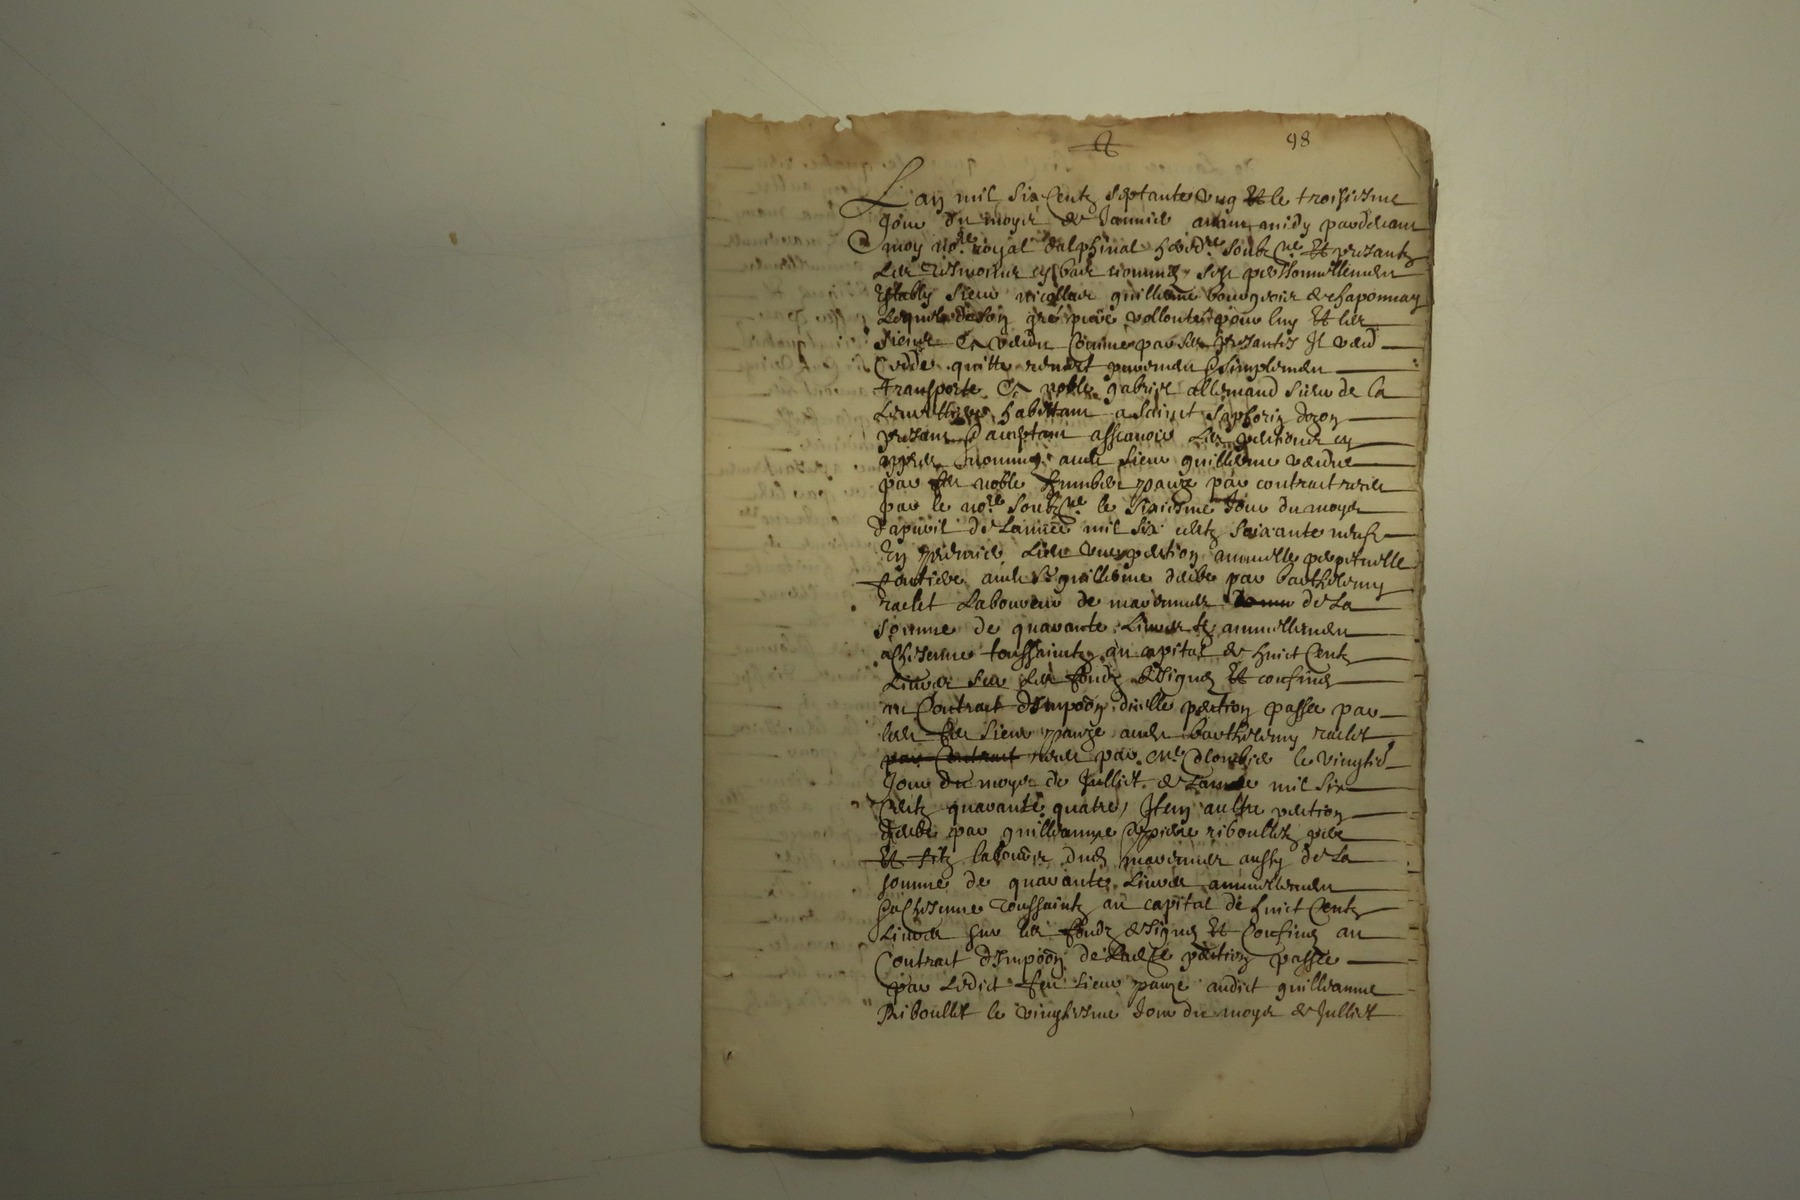 98
Lan mil six Centz septante ung Et le troisiesme
Jour du moys de Janvier avant midy pardevant
moy no.re royal dalphinal hered.re soubz.ne Et presantz
Les tesmoins cy bas nommes sest personnellement
Estably sieur nicollas guilleme bourgeois de chaponnay
Lequel de son gré pure vollonté pour luy Et les
siens A vandu Comme par les presantes Il vand
Cedde quitte remet purement & simplement
transporte A noble gabriel allemand sieur de la
habittant a Sainct Saphorin dozon
presant & aceptant assavoir Les pentions cy
appres audt sieur guilleme vandue
par noble par contract receu
par le no.re soubz.ne le Jour du moys
dapvril de Lannee mil six centz soixante neufz
En premier Lieu une pention annuelle perpetuelle
fontiere audt Sr guilleme deube par barthelemy
raclet Laboureur de marennes de La
somme de quarante Livres tz annuellement
a chesque toussaintz au capital de huict Centz
Livres sur les fondz designes Et confines
au Contract dImpoõn dicelle pention passee par
ledt feu sieur audt barthelemy raclet
par Contract receu par Me le vingties
Jour du moys de Julliet de Lannee mil six
Centz quarante quatre, Item aultre pention
deube par guilleaume & pierre riboullet pere
Et filz laboures dudt marennes aussy de La
somme de quarante Livres annuellement
a Chesque toussaintz au capital de huict Centz
Livres sur les fondz designes Et Confines au
Contract dImpoõn de Ladte pention passee
par Ledict feu sieur audict guilleaume
Riboullet le vingtiesme Jour du moys de Julliet